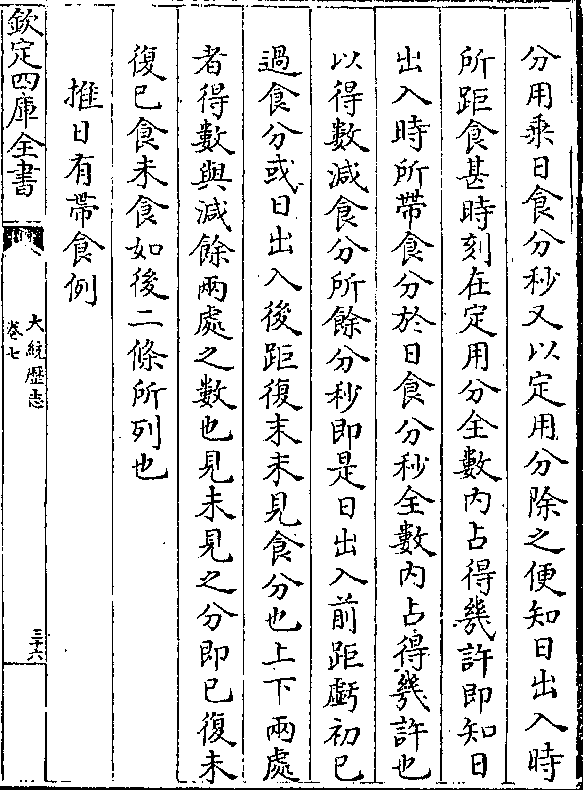 分用乘日食分秒又以定用分除之便知日出入時
所距食甚時刻在定用分全數内占得幾許即知日
出入時所帶食分於日食分秒全數内占得幾許也
以得數減食分所餘分秒即是日出入前距虧初已
過食分或日出入後距復末未見食分也上下兩處
者得數與減餘兩處之數也見未見之分即已復未
復已食未食如後二條所列也
推日有帶食例
欽定四庫全書
大統歴志
卷七
三十六